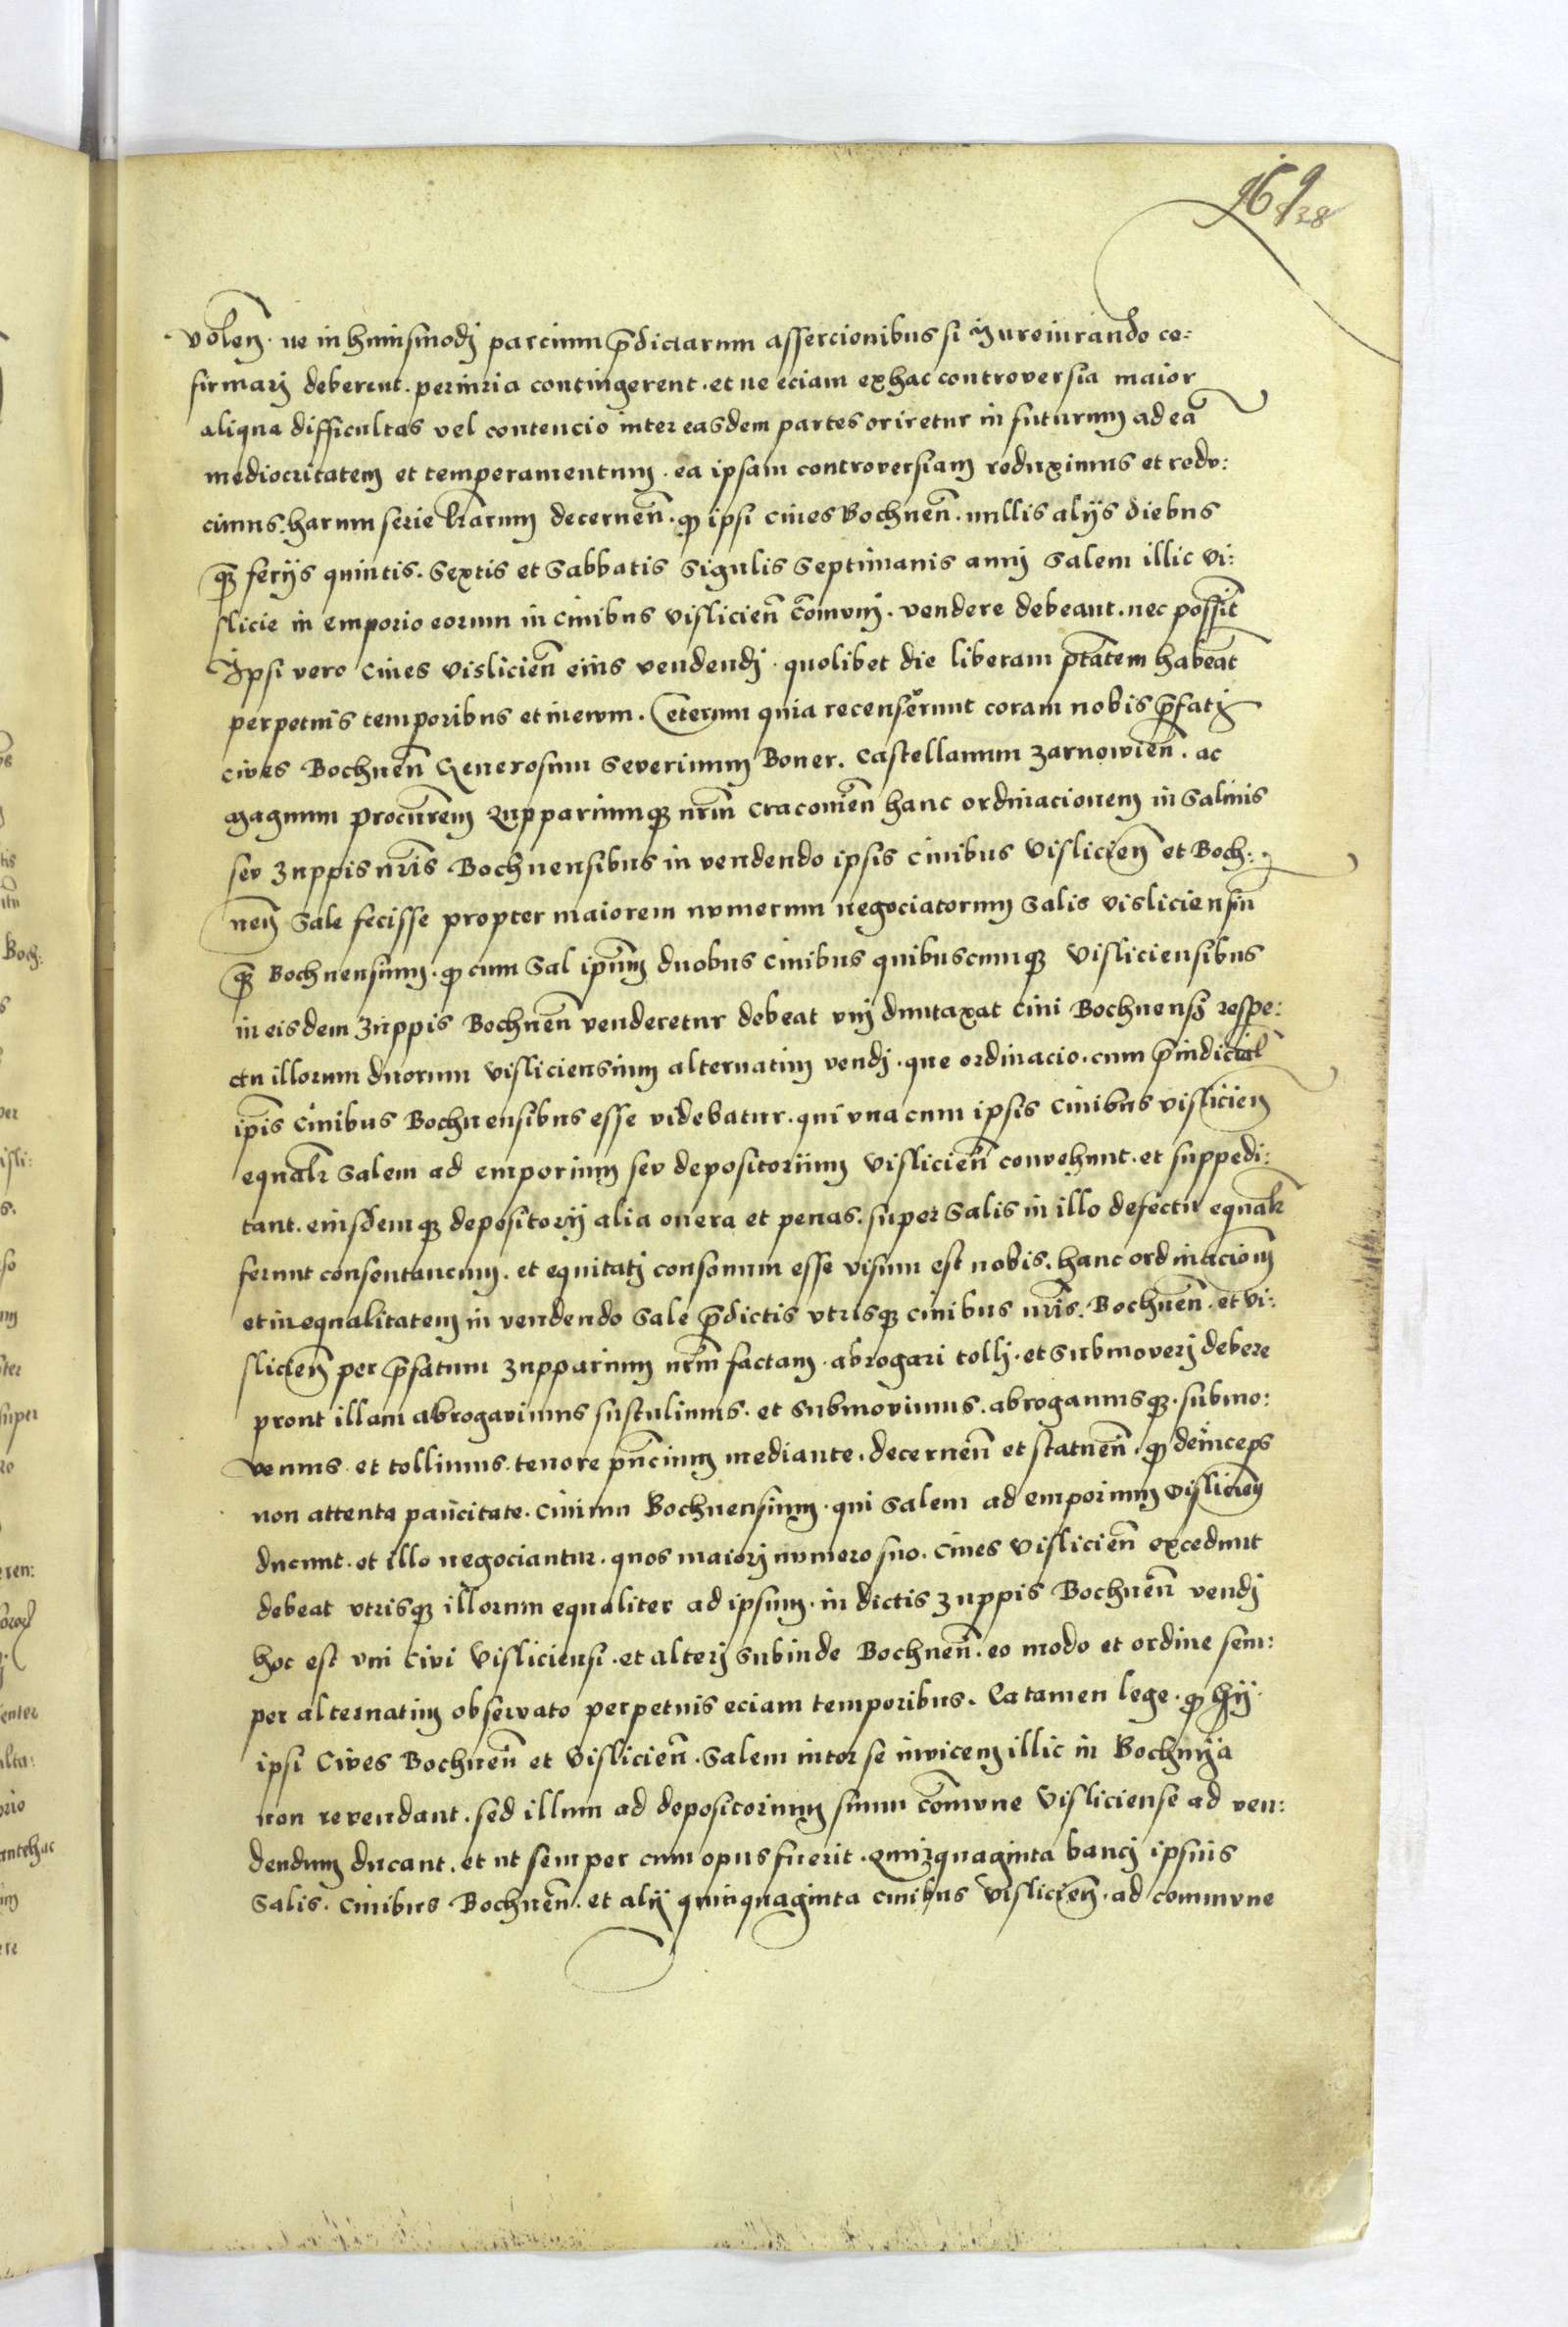 969
138
volen̄. ne in huiusmodj parcium p̄dictarum assercionibus si Jureiurando co:
firmarj deberent. periuria contingerent. et ne eciam ex hac controversia maior
aliqua difficultas vel contencio inter easdem partes oriretur in futurum ad eā
mediocritatem et temperamentum. ea ipsam controversiam reduximus et redu:
cimus. harum serie lr̄arum decernen̄. qͦ ipsi ciues Bochnen̄. nullis alijs diebus
qᷓ ferijs quintis. Sextis et Sabbatis Sīgulis Septimanis annj Salem illic vi:
slicie in emporio eorum in ciuibus vislicien̄ cōmunj. vendere debeant. nec possīt
Ipsi vero Ciues vislicien̄ eius vendendj. quolibet die liberam ptātem habeāt
perpetuis temporibus et in ewm. Ceterum quia recenserunt coram nobis p̄fatj
cives Bochnen̄ Generosum Severinum Boner. Castellanum Zarnowien̄. ac
magnum procur̄em zuppariumqꝫ nr̄m Cracouien̄ hanc ordinacionem in Salinis
sev zuppis nr̄is Bochnensibus in vendendo ipsis ciuibus vislicien̄ et Boch:
nen̄ Sale fecisse propter maiorem numerum negociatorum Salis visliciensiū
qᷓ Bochnensium. qͦ cum Sal ip̄um duobus ciuibus quibuscumqꝫ visliciensibus
in eisdem zuppis Bochnen̄ venderetur debeat vnj duntaxat ciui Bochnensi respe:
ctu illorum duorum visliciensium alternatim vendj. que ordinacio. cum p̄iudicial
ip̄is ciuibus Bochnensibus esse videbatur. qui vna cum ipsis Ciuibus vislicien̄
equalr̄ Salem ad emporium sev depositorium vislicien̄ convehunt. et suppedi:
tant. eiusdemqꝫ depositorij alia onera et penas. super Salis in illo defectu equalr̄
ferunt consentaneum. et equitatj consonum esse visum est nobis. hanc ordinacionē
et inequalitatem in vendendo Sale p̄dictis vtrisqꝫ ciuibus nr̄is. Bochnen̄. et vi:
slicien̄ per p̄fatum zupparium nr̄m factam. abrogari tollj. et Submoverj debere
prout illam abrogavimus sustulimus. et submovimus. abrogamusqꝫ. submo:
vemus. et tollimus. tenore pn̄cium mediante. decernen̄ et statuen̄. qͦ deinceps
non attenta paucitate. ciuium Bochnensium. qui Salem ad emporium vislicien̄
ducunt. et illo negociantur. quos maiorj numero suo. Ciues vislicien̄ excedunt
debeat vtrisqꝫ illorum equaliter ad ipsum. in dictis zuppis Bochnen̄ vendj
hoc est vni Civi visliciensi. et alterj subinde Bochnen̄. eo modo et ordine sem:
per alternatim observato perpetuis eciam temporibus. Ea tamen lege. qͦ hij
ipsi Cives Bochnen̄ et vislicien̄. Salem inter se invicem illic in Bochnija
non revendant. sed illum ad depositorium suum cōmune visliciense ad ven:
dendum ducant. et ut semper cum opus fuerit. Quinquaginta bancj ipsius
Salis. Ciuibus Bochnen̄. et alij quinquaginta ciuibus vislicien̄. ad commune